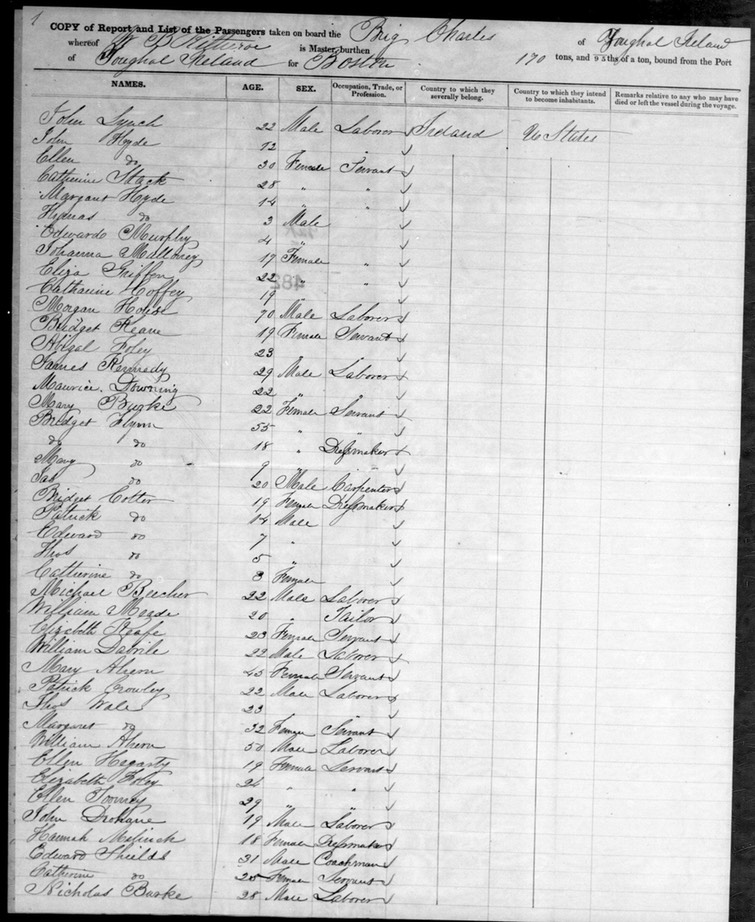 1
COPY of Report and List of the Passengers taken on board the Brig Charles of Youghal Ireland
whereof is Master, burthen 170 tons, and 95ths of a ton, bound from the Port
of Youghal Ireland for Boston
NAMES. AGE. SEX. Occupation, Trade, or Profession. Country to which they severally belong. Country to which they intend to become inhabitants. Remarks relative to any who may have died or left the vessel during the voyage.
John Lynch 22 Male Laborer Ireland U States
John Hyde 12 "
Ellen do 30 Female Servant
Catherine Stack 28 " "
Margaret Hyde 14 " "
do 3 Male
Edward Murphy 4 "
Johanna Malloney 19 Female "
Eliza Griffon 22 " "
Catharine Coffey 19 "
Morgan House 70 Male Laborer
Bridget Keane 19 Female Servant
Abigal Foley 23
James Kennedy 29 Male Laborer
Maurice Downing 22 "
Mary Burke 22 Female Servant
Bridget Flynn 55 " "
do do 18 " Dressmaker
Mary do 9
Jas do 20 Male Carpenter
Bridget Cotter 19 Female Dressmaker
Patrick do 14 Male
Edward do 7 "
Thos do 5 "
Catherine do 3 Female
Michael Beecher 22 Male Laborer
William Meade 20 " Tailor
Elizabeth Keafe 23 Female Servant
William 22 Male Laborer
Mary Ahern 45 Female Servant
Patrick Crowley 22 Male Laborer
Thos Wale 23
Margaret do 32 Female Servant
William Ahern 50 Male Laborer
Ellen Hegarty 19 Female Servant
Elizabeth Foley 24 " "
Ellen Toomey 29 " "
John Drohane 19 Male Laborer
Hannah 18 Female Dressmaker
Edward Shields 31 Male Coachman
Catherine do 25 Female Servant
Nicholas Burke 28 Male Laborer